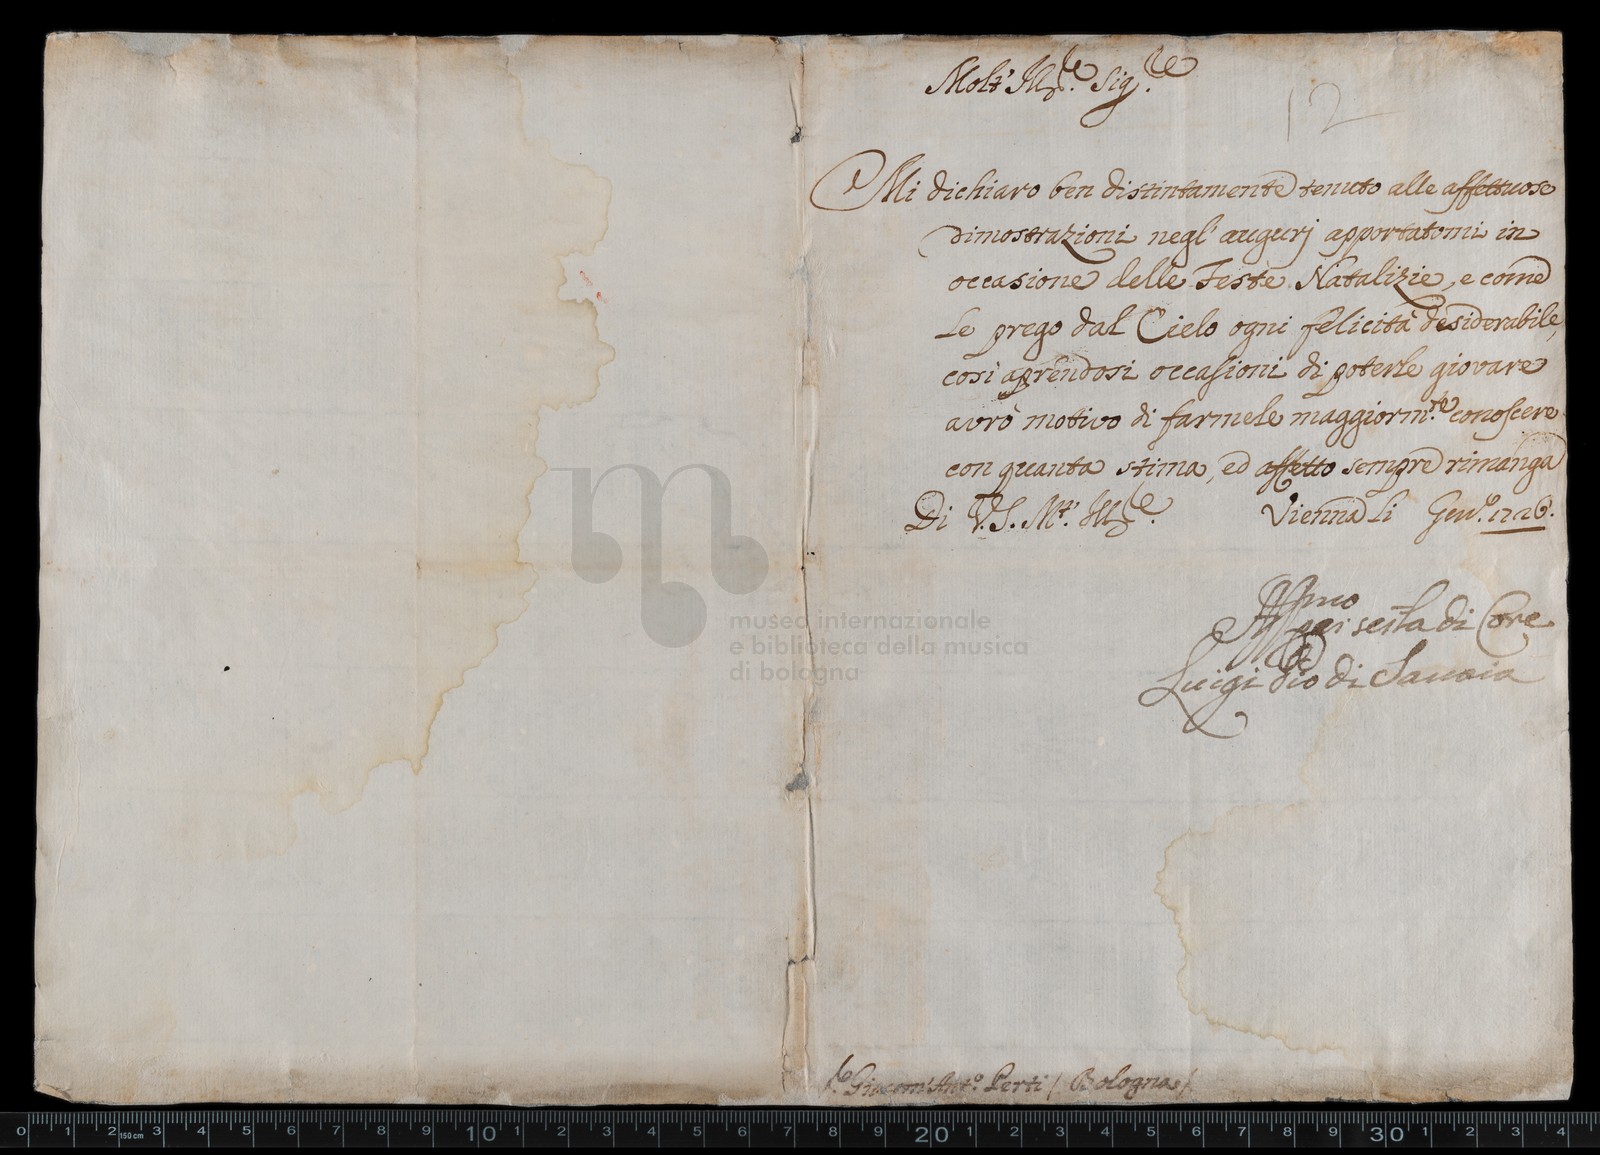 Molt' Ill.re Sig.re
12
Mi dichiaro ben distintamente tenuto alle affettuose
dimostrazioni negl' augurj apportatomi in
occasione delle Feste Natalizie, e come
Le prego dal Cielo ogni felicità desiderabile,
così aprendosi occasioni di poterle giovare
avrò motivo di farmele maggiorm.te conoscere
con quanta stima, ed affetto sempre rimanga
Di V.S. Mt.' Ill.re Vienna li Gen.o 1726.
Aff.mo per seruirla di Core
Luigi Pio di Sauoia
museo internazionale
e biblioteca della musica
di bologna
Giacom' Ant.o Perti / Bologna /
0 1 2 150 cm 3 4 5 6 7 8 9 10 1 2 3 4 5 6 7 8 9 20 1 2 3 4 5 6 7 8 9 30 1 2 3 4